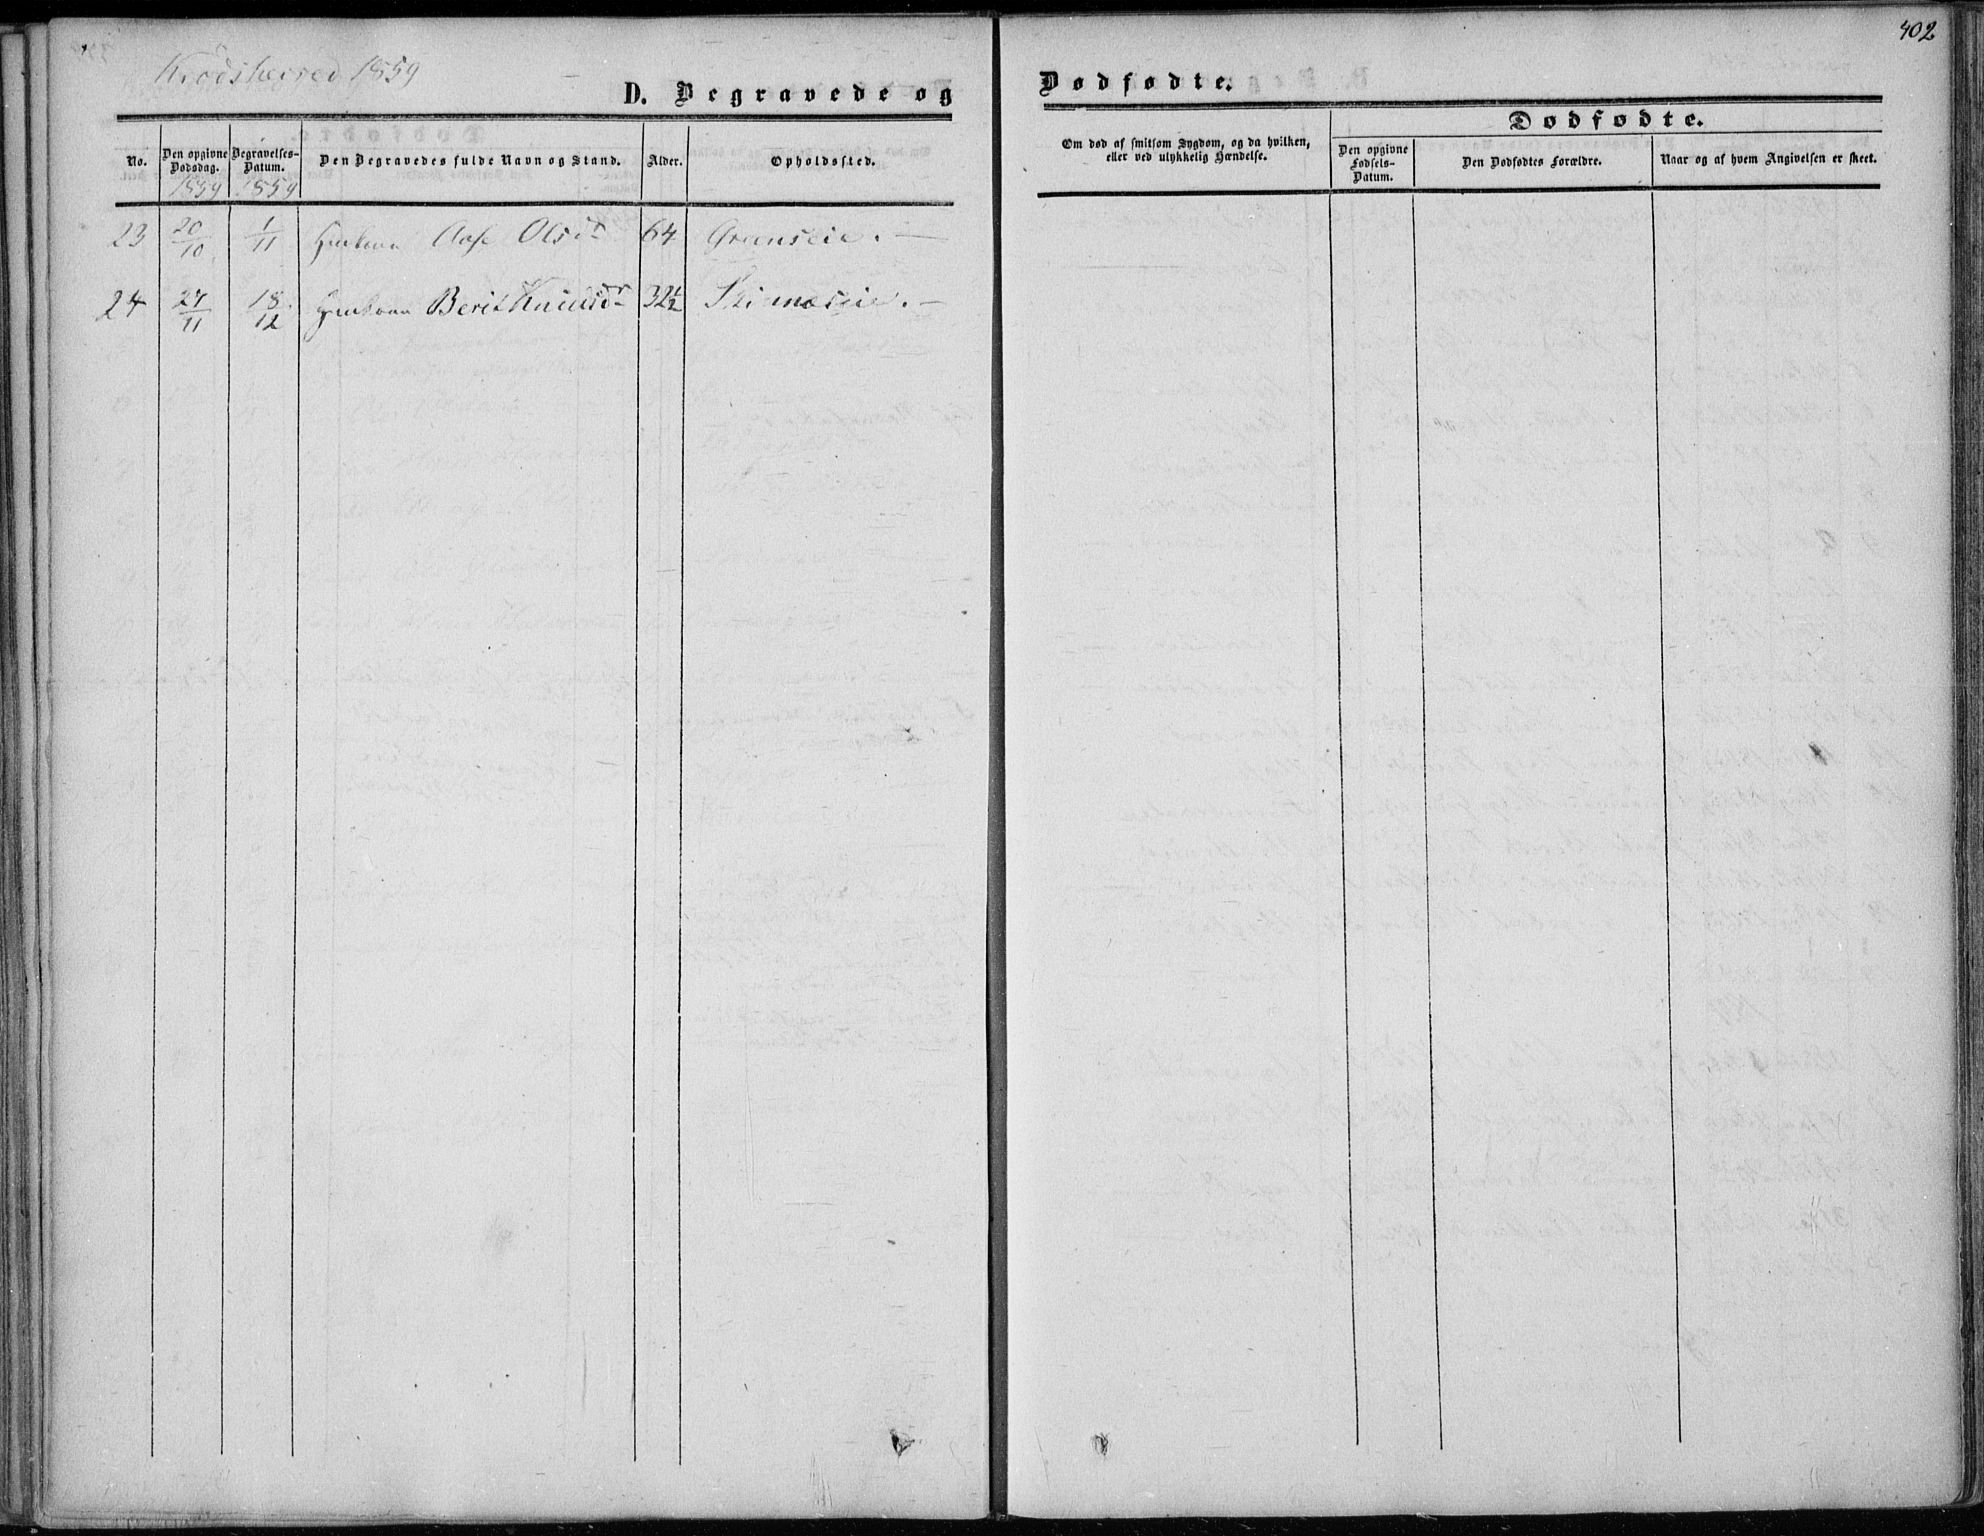 402
Krødsherred 1859
D. Begravede og
Dødfødte.
Dødfødte.
No.
Den opgivne Dødsdag.
Begravelses-Datum.
Den Begravedes fulde Navn og Stand.
Alder.
Opholdssted.
Om død af smitsom Sygdom, og da hvilken, eller ved ulykkelig Hændelse.
Den opgivne Fødsels-Datum.
Den Dødfødtes Forældre.
Naar og af hvem Angivelsen er skeet.
1859 1859
23 20/10 1/11 Huskone Aase Olsdr 64 Greenseie. —
24 27/11 18/12 Huskone Berit Knudsdr 32½ —